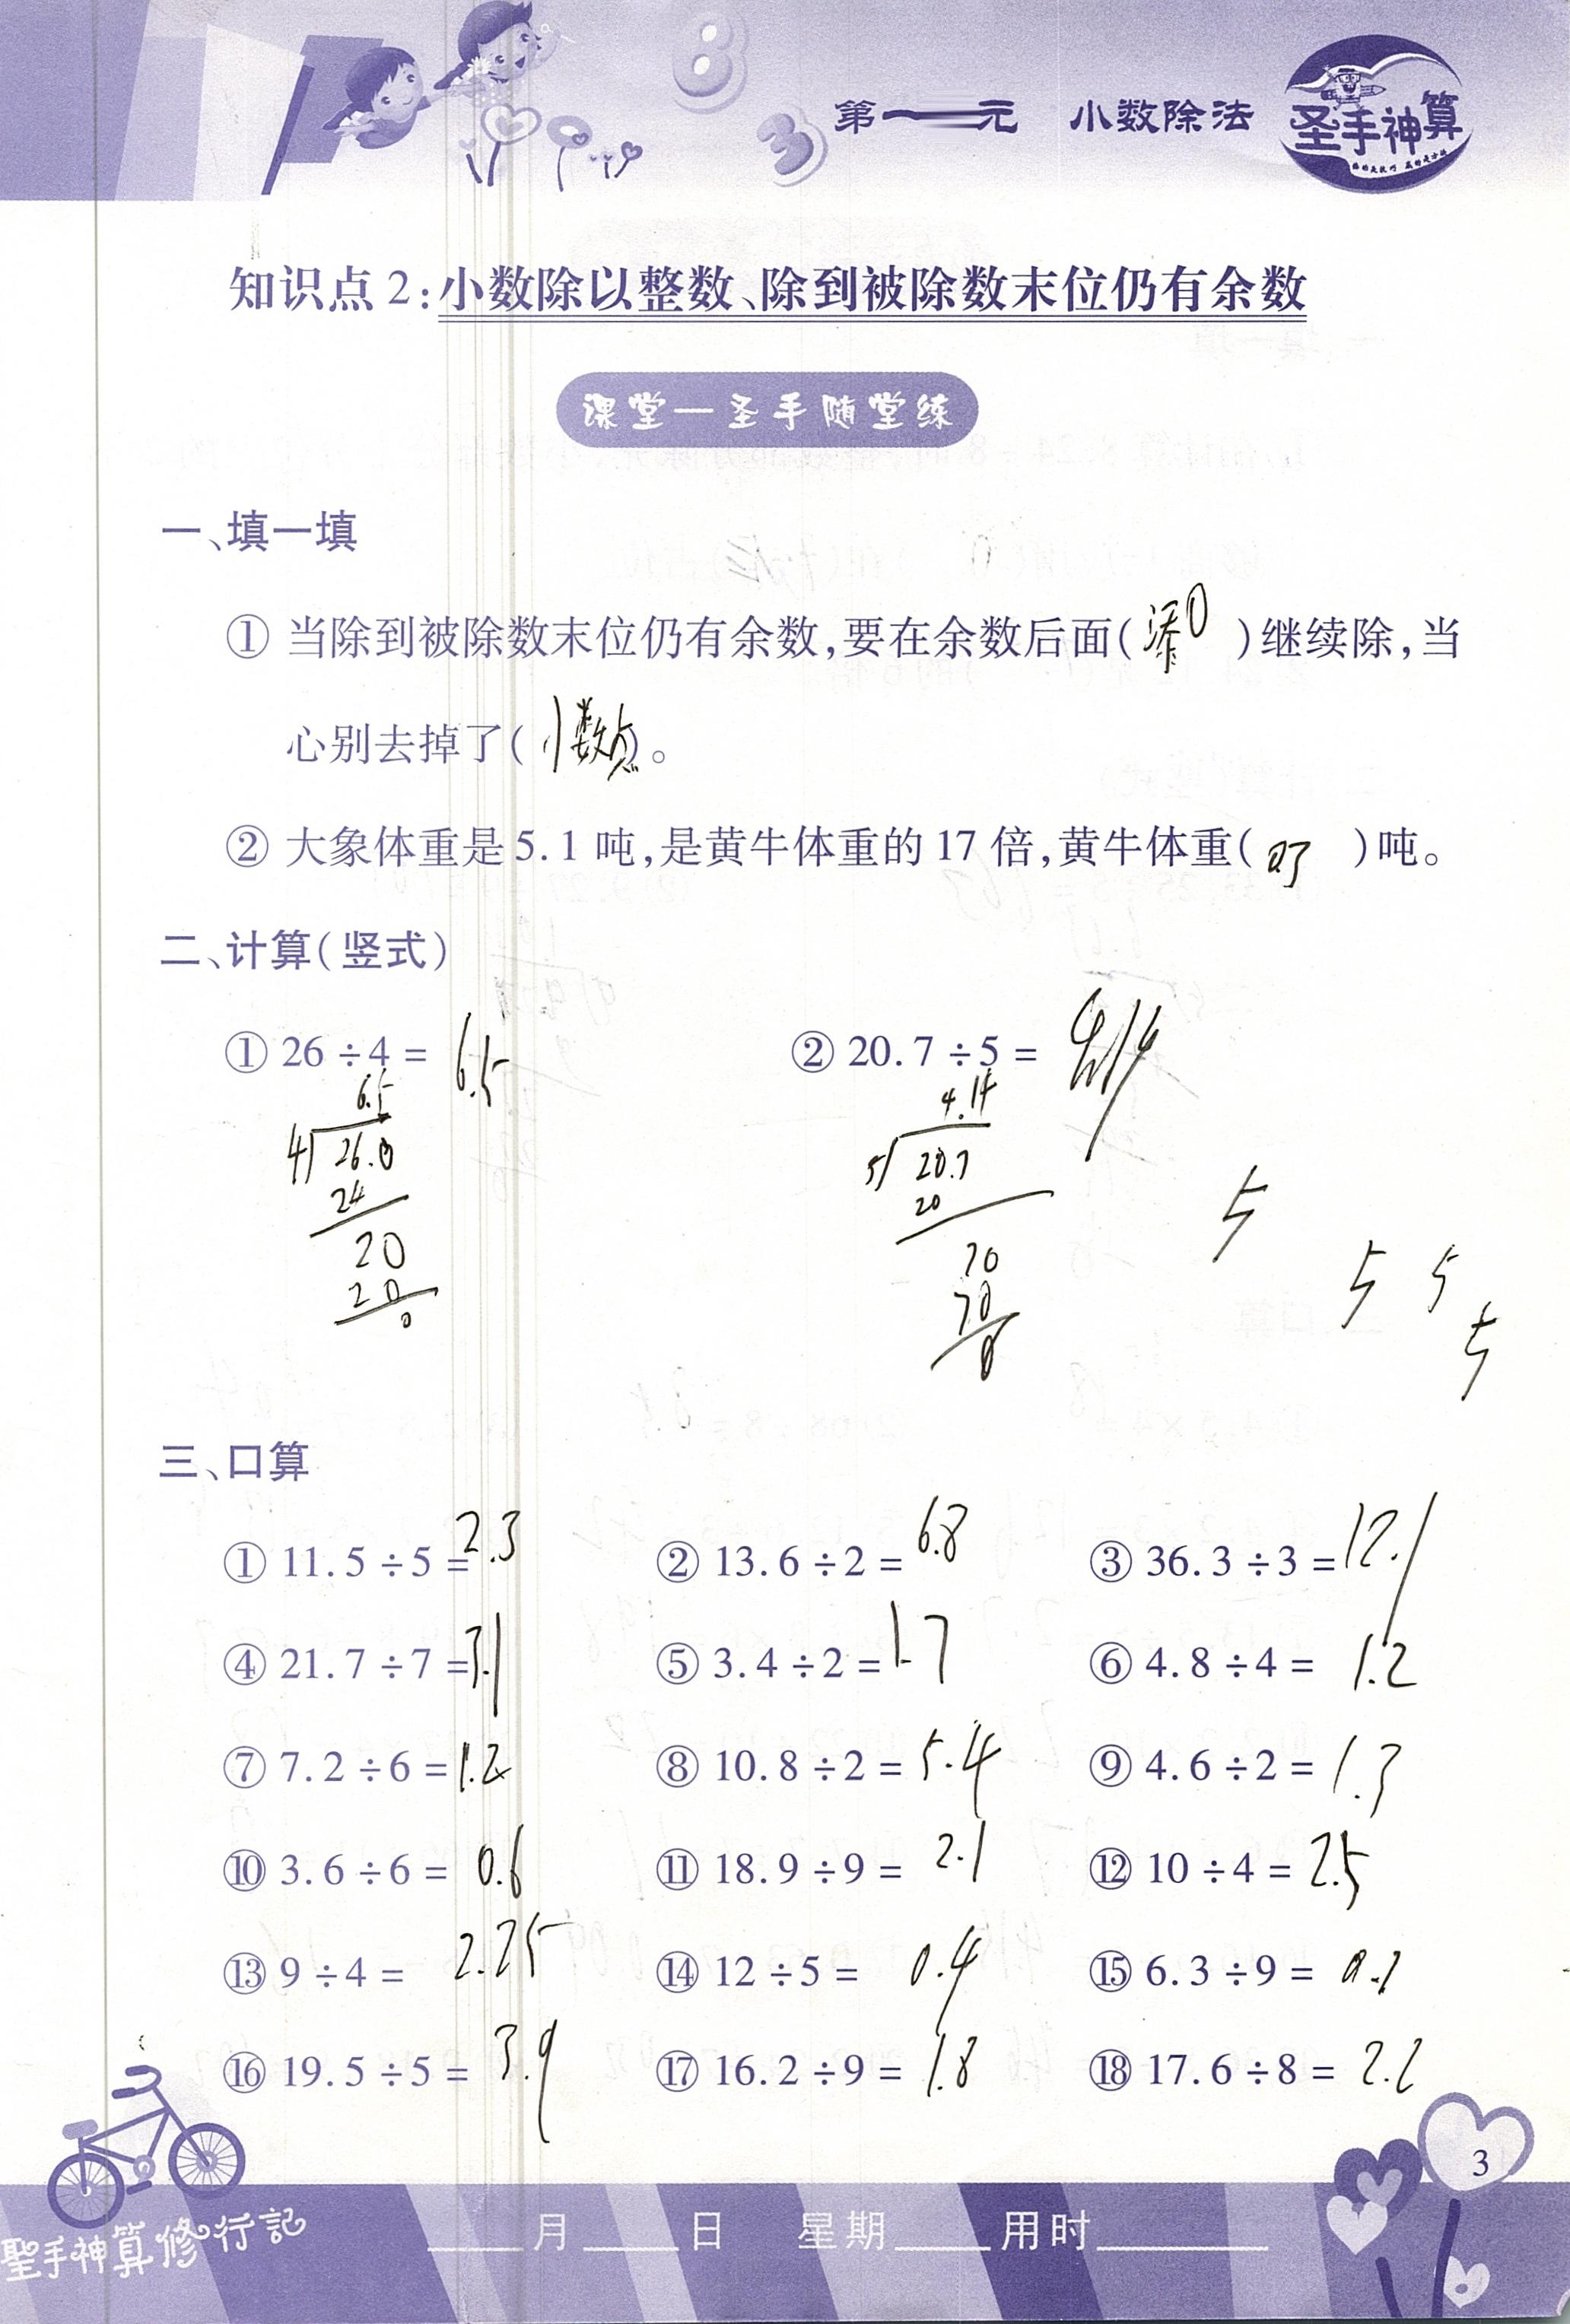 第一 元 小数除法
圣手神算
知识点2:小数除以整数、除到被除数末位仍有余数
课堂—圣手随堂练
一、填一填
① 当除到被除数末位仍有余数,要在余数后面(添0)继续除,当
心别去掉了(小数点)。
② 大象体重是5.1吨,是黄牛体重的17倍,黄牛体重(0.3)吨。
二、计算(竖式)
① 26÷4= 6.5 ② 20.7÷5= 4.14
6.5 4.14
4 26.0 5 20.7
24 20
20 70
20 70
0 0
5
5 5
5
三、口算
① 11.5÷5=2.3 ② 13.6÷2=6.8 ③ 36.3÷3=12.1
④ 21.7÷7=3.1 ⑤ 3.4÷2=1.7 ⑥ 4.8÷4=1.2
⑦ 7.2÷6=1.2 ⑧ 10.8÷2=5.4 ⑨ 4.6÷2=1.3
⑩ 3.6÷6=0.6 ⑪ 18.9÷9=2.1 ⑫ 10÷4=2.5
⑬ 9÷4=2.25 ⑭ 12÷5=0.4 ⑮ 6.3÷9=0.7
⑯ 19.5÷5=3.9 ⑰ 16.2÷9=1.8 ⑱ 17.6÷8=2.2
3
聖手神算修行記
月 日 星期 用时